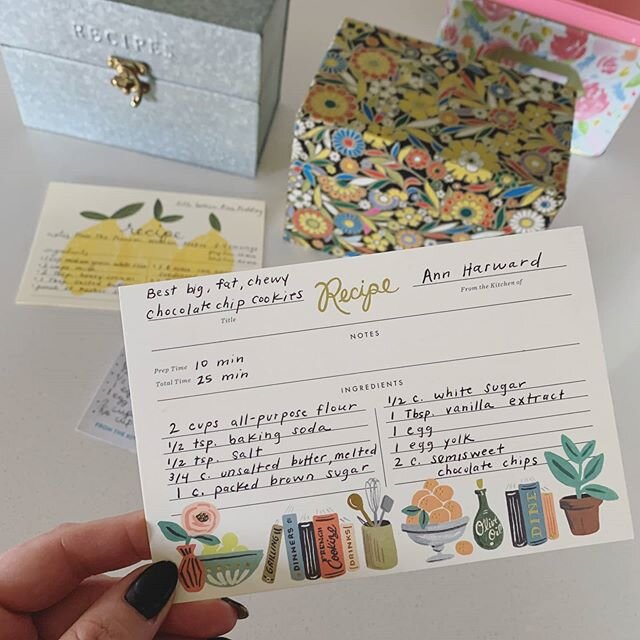 RECIPES
recipe
Best big, fat, chewy
chocolate chip cookies
Title
Recipe
Ann Harward
From the Kitchen of
NOTES
Prep Time 10 min
Total Time 25 min
INGREDIENTS
2 cups all-purpose flour
1/2 tsp. baking soda
1/2 tsp. salt
3/4 c. unsalted butter, melted
1 c. packed brown sugar
1/2 c. white sugar
1 Tbsp. vanilla extract
1 egg
1 egg yolk
2 c. semisweet
chocolate chips
GRILLING
DINNERS
FRENCH
Cooking
DRINKS
Olive
Oil
DINE
FROM THE